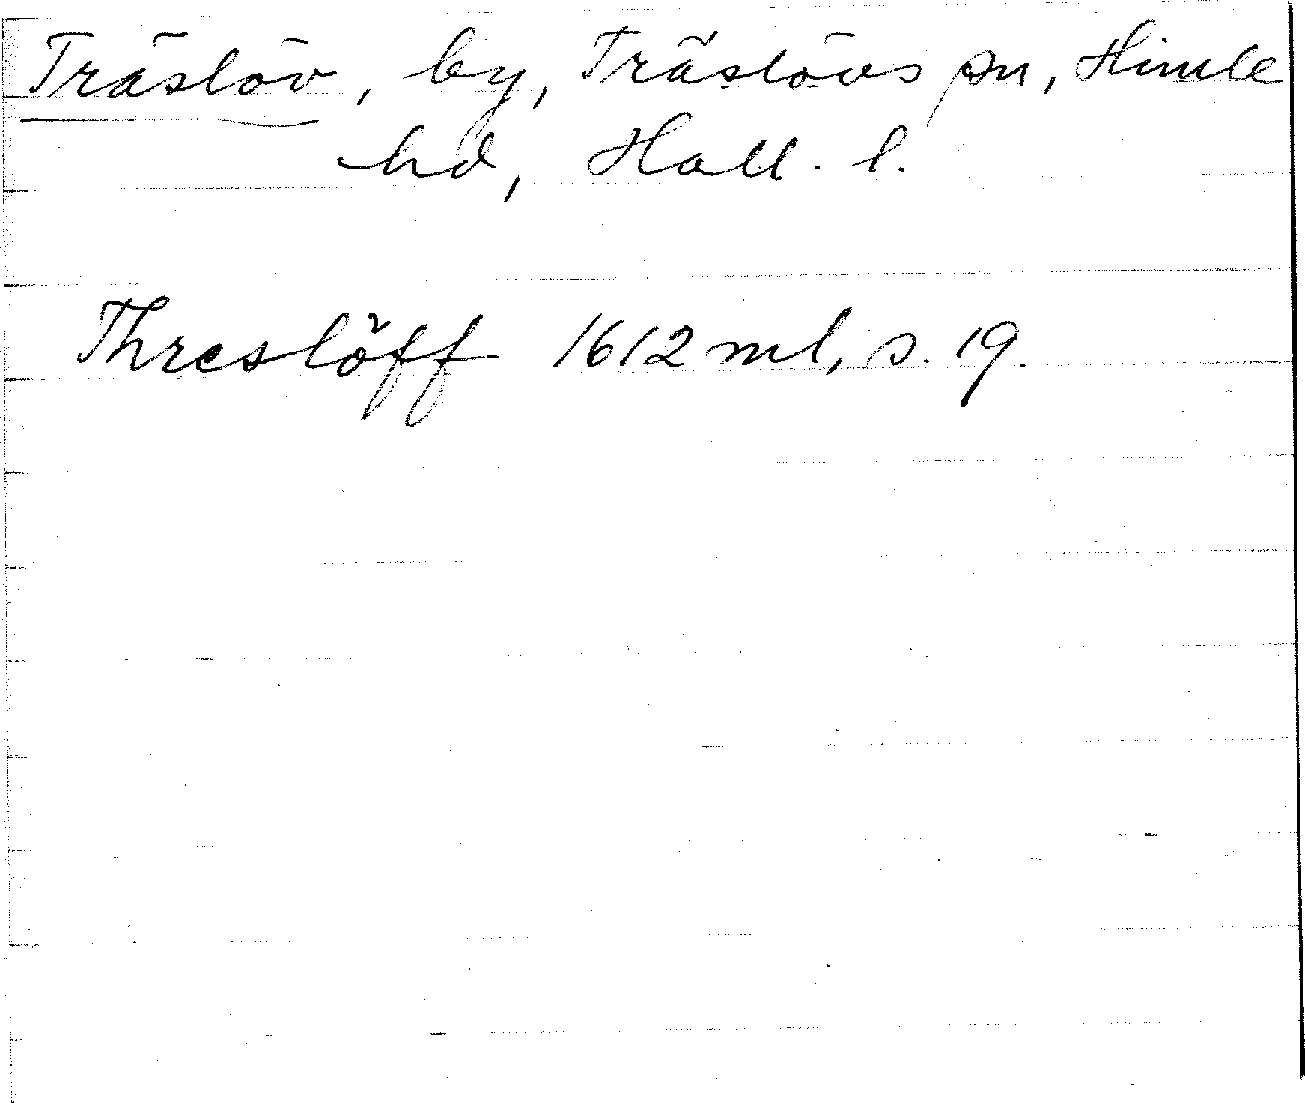 Träslöv, by, Träslövs sn, Himle
hd, Hall. l.
Threslöff 1612 ml, s. 19.